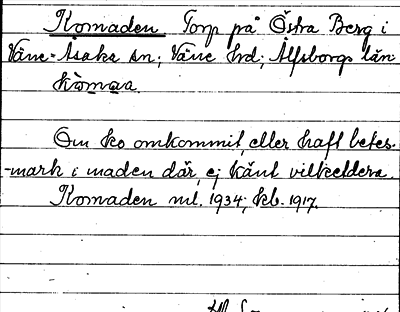 Komaden Torp på Östra Berg i
Väne-Åsaka sn; Väne hd; Älfsborgs län
kòmaa.
Om ko omkommit, eller haft betes-
-mark i maden där, ej känt vilketdera.
Komaden ml. 1934; kb. 1917.